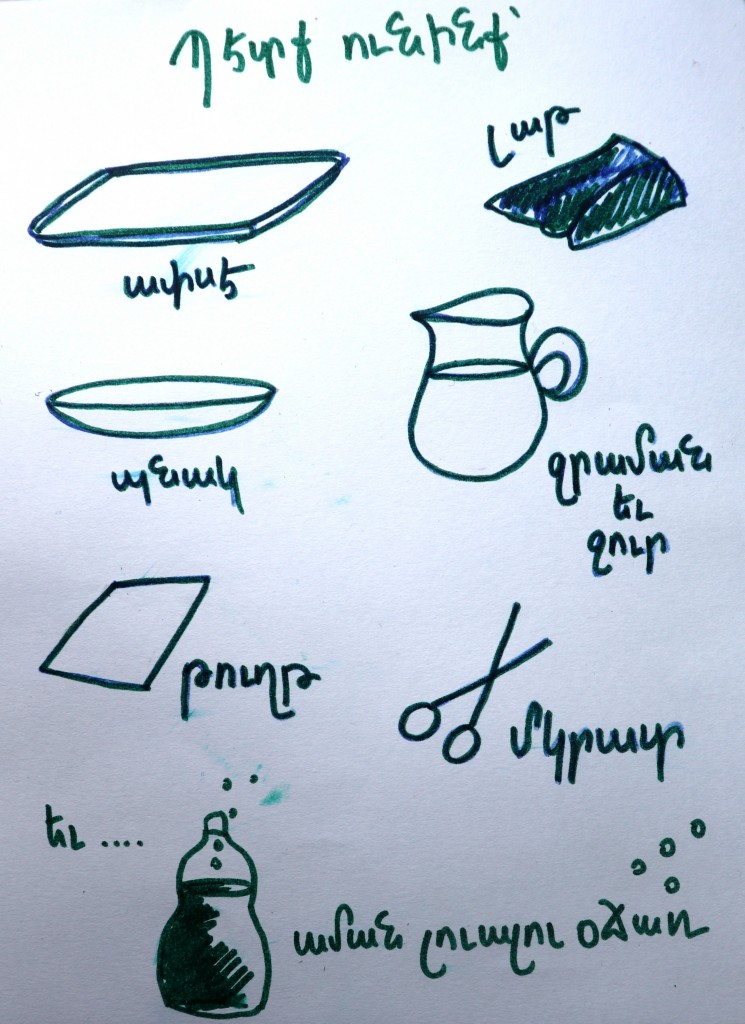 Պէտք ունինք՝
լաթ
ափսէ
պնակ
ջրաման
եւ
ջուր
թուղթ
մկրատ
եւ ....
աման լուալու օճառ